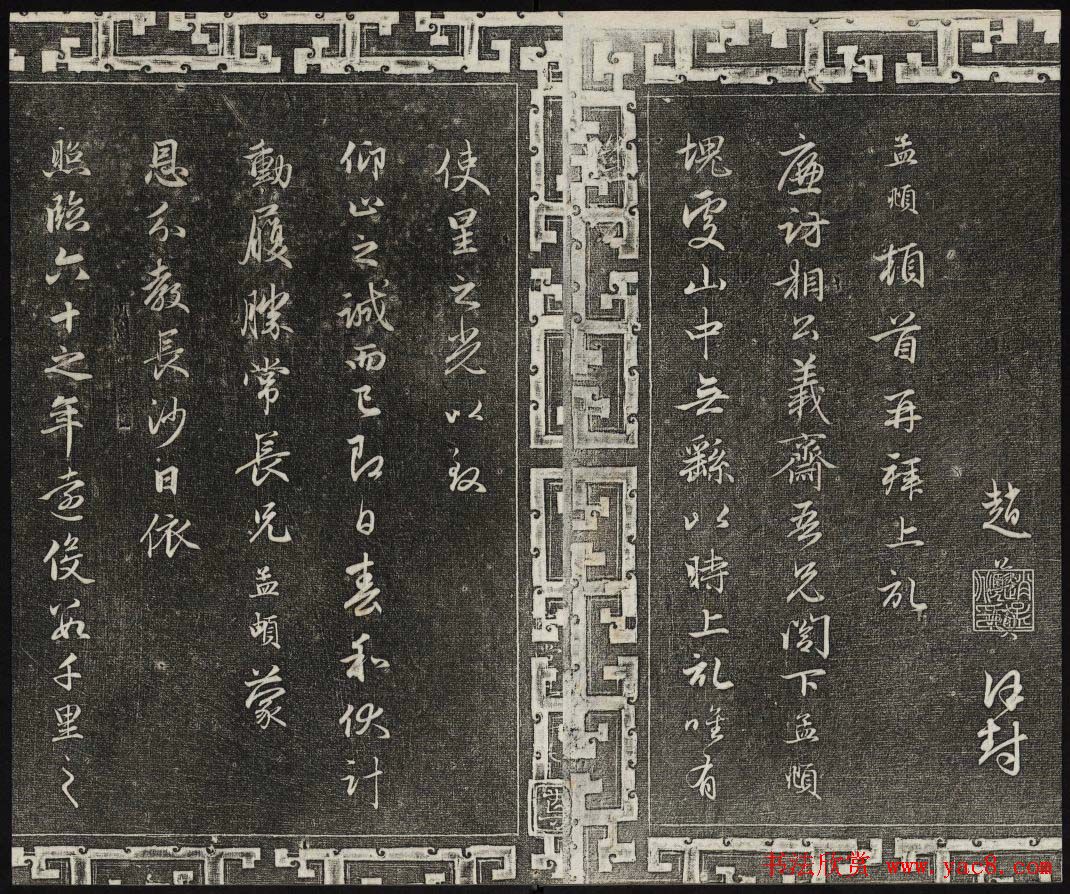 趙 謹封
孟頫頓首再拜上記
廉訪相公義齋吾兄閤下孟頫
塊處山中無繇以時上記唯有
使星之光以致
仰止之誠而已即日春和伏計
動履勝常長兄孟頫蒙
恩分教長沙日依
照臨六十之年遠役數千里之
书法欣赏 www.yac8.com